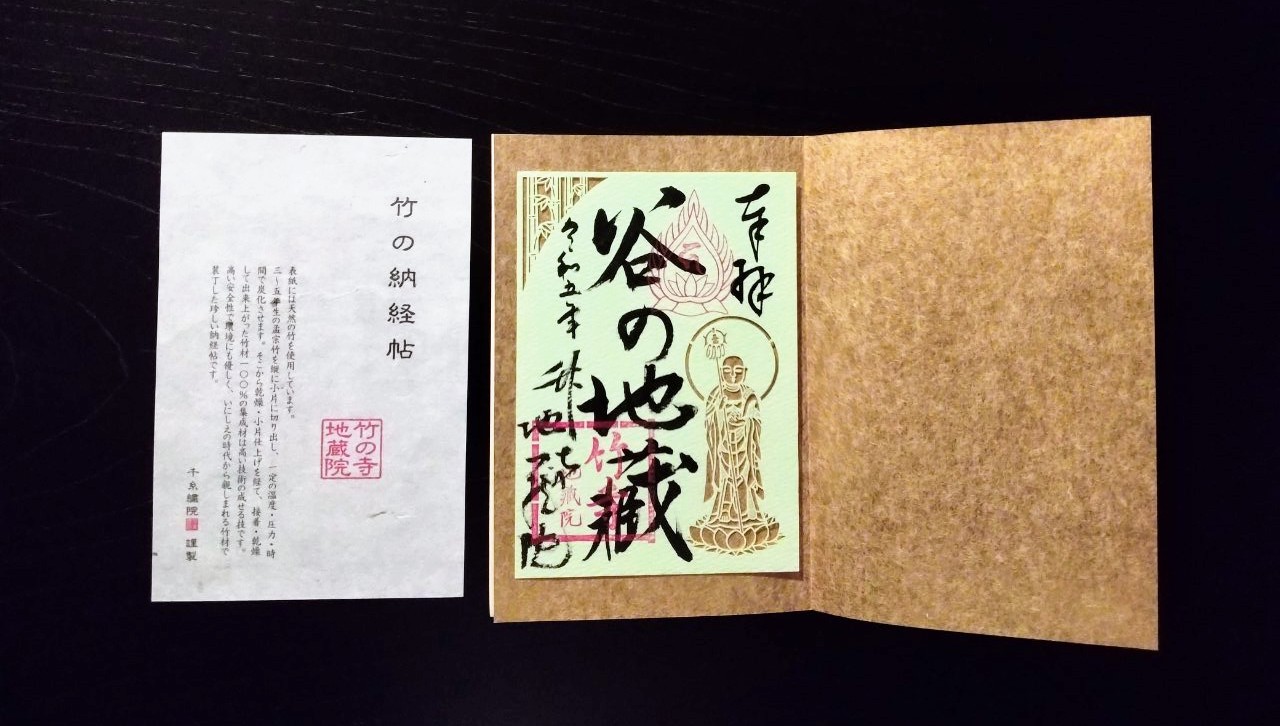 竹の納経帖
表紙には天然の竹を使用しています。
三～五年生の孟宗竹を縦に小片に切り出し、一定の温度・圧力・時
間で炭化させます。そこから乾燥・小片仕上げを経て、接着・乾燥
して出来上がった竹材一〇〇％の集成材は高い技術の成せる技です。
高い安全性で環境にも優しく、いにしえの時代から親しまれる竹材で
装丁した珍しい納経帖です。
竹の寺
地蔵院
千糸繍院 謹製
奉拝
谷の地蔵
令和五年 秋
竹寺
地蔵院